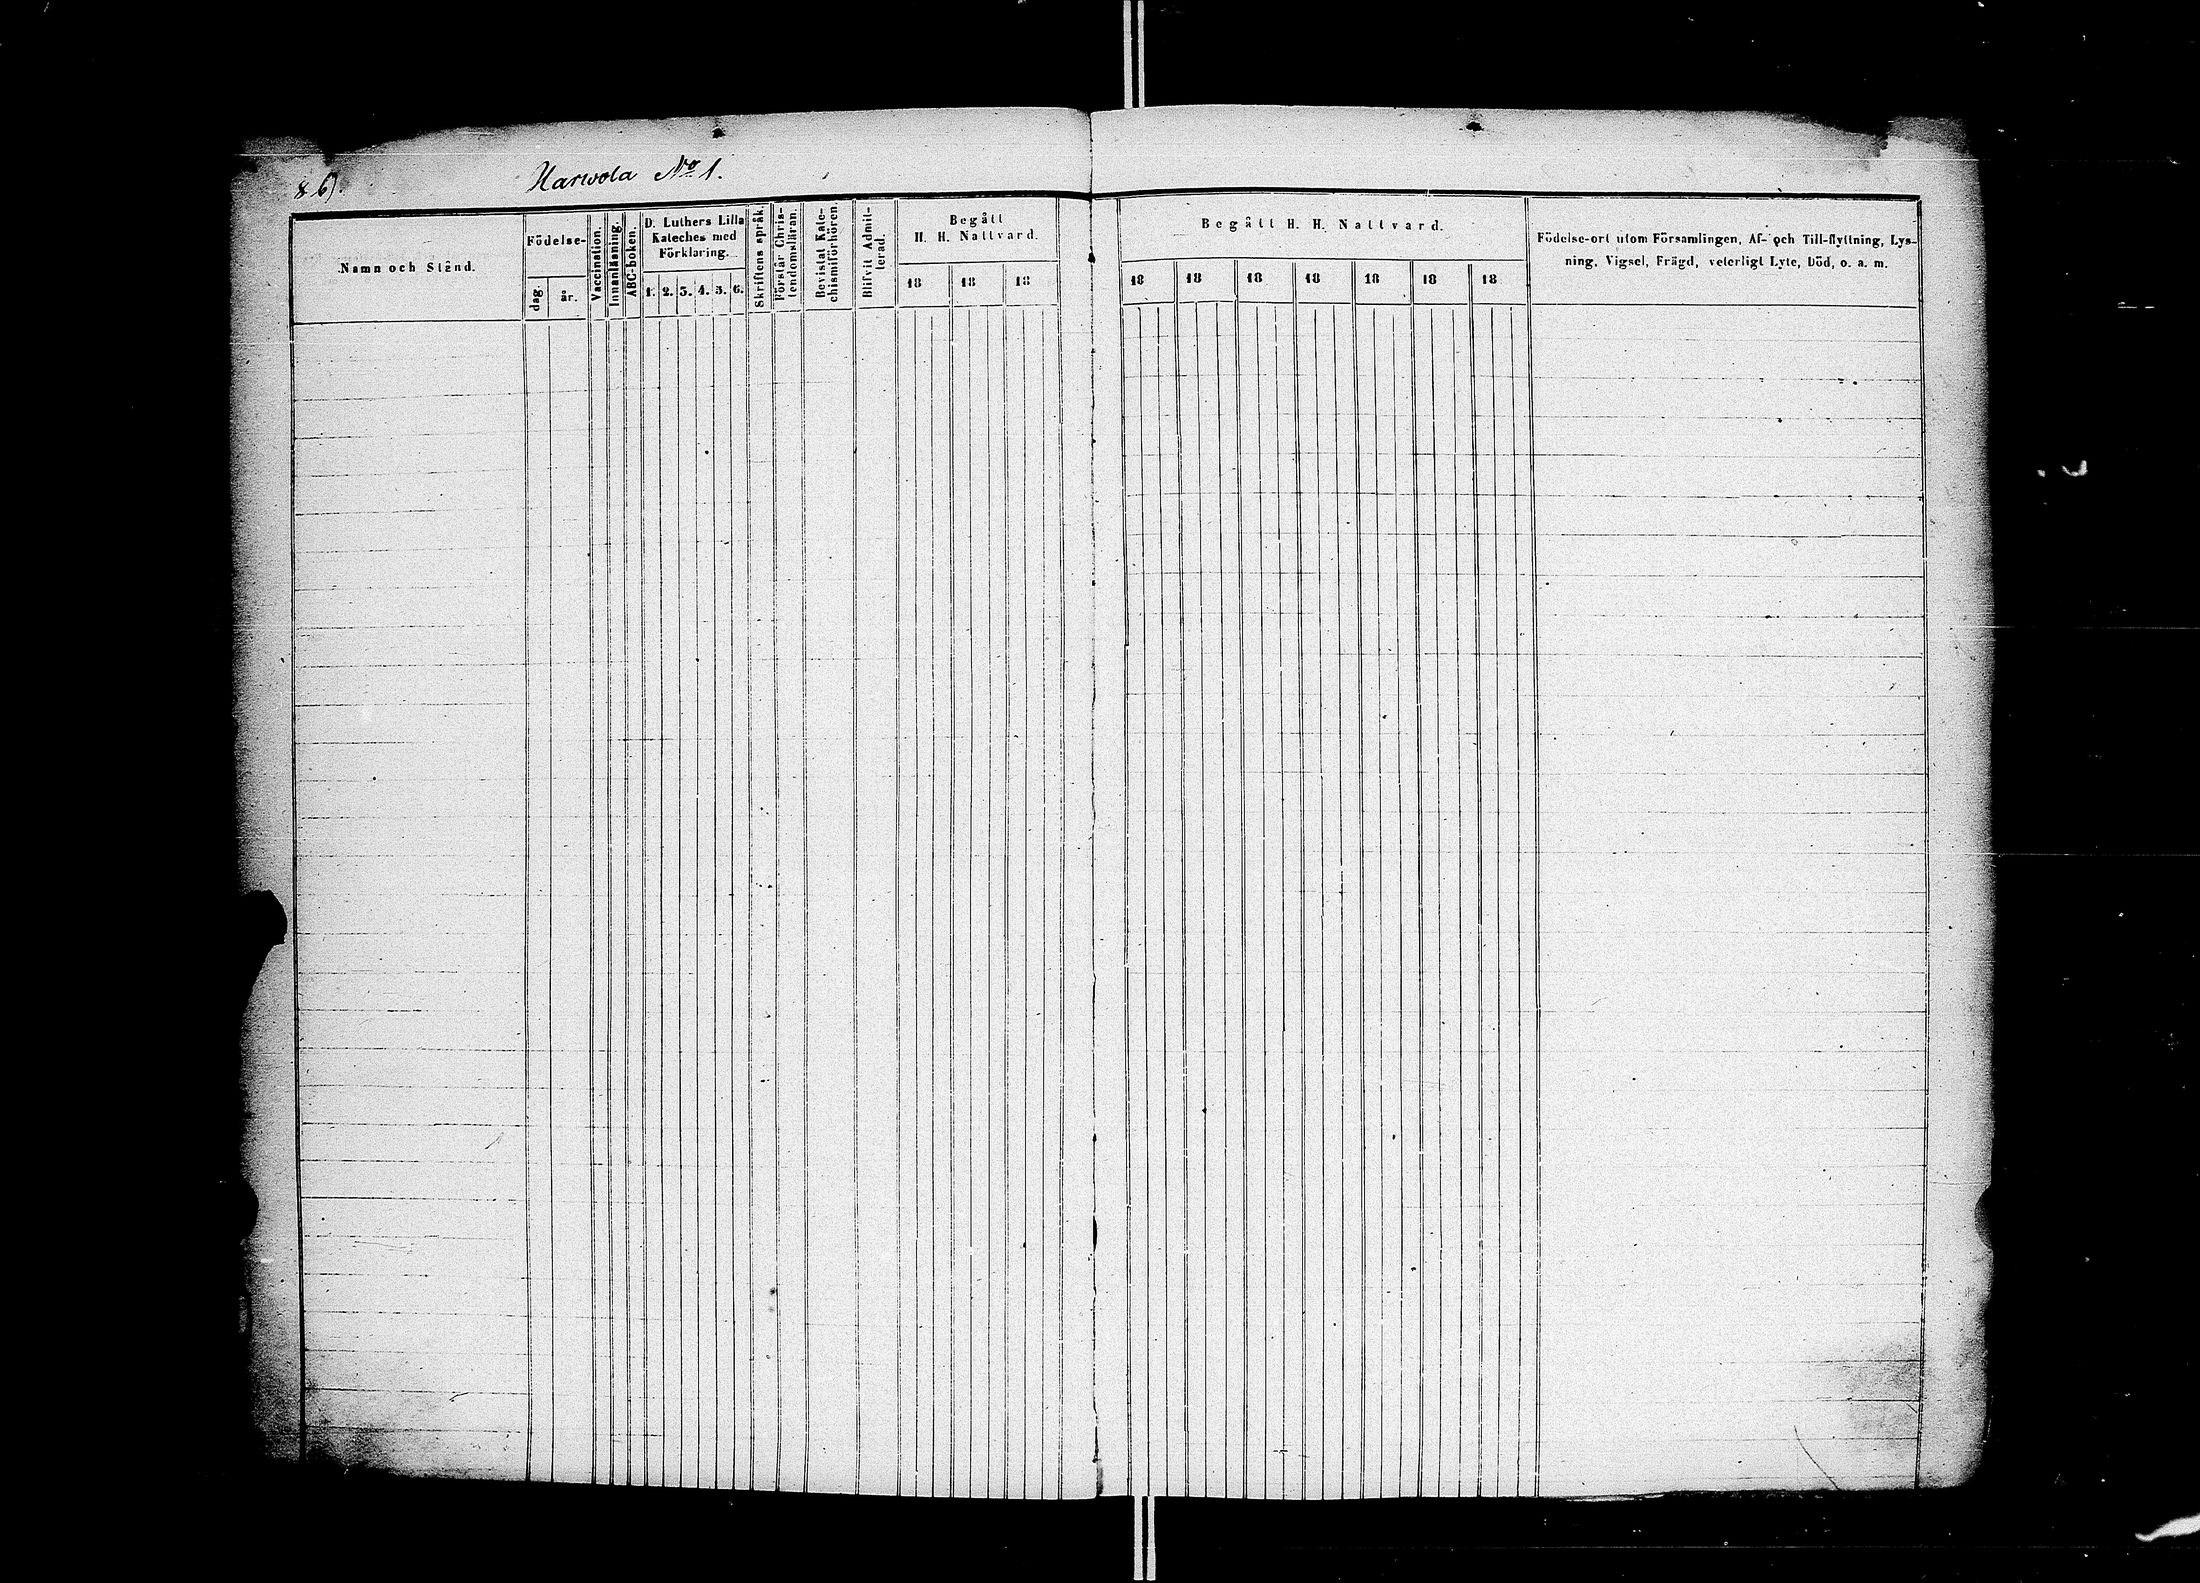 86).
Harwola No 1.
Namn och Stånd.
Födelse-
dag.
år.
Vaccination.
Innanläsning.
ABC-boken.
D. Luthers Lilla
Kateches med
Förklaring.
1. 2. 3. 4. 5. 6.
Skriftens språk.
Förstår Chris-
tendomsläran.
Bevistat Kate-
chismiförhören.
Blifvit Admit-
terad.
Begått
H. H. Nattvard.
18 18 18
Begått H. H. Nattvard.
18 18 18 18 18 18 18
Födelse-ort utom Församlingen, Af- och Till-flyttning, Lys-
ning, Vigsel, Frägd, veterligt Lyte, Död, o. a. m.